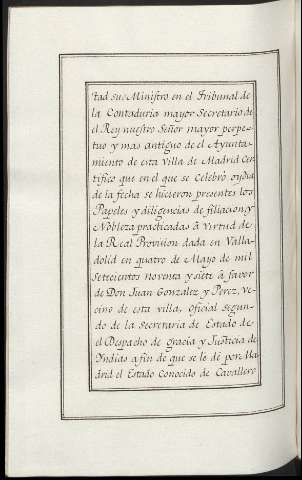 tad su Ministro en el Tribunal de
la Contaduria mayor Secretario de
el Rey nuestro Señor mayor perpe-
tuo y mas antiguo de el Ayunta-
miento de esta Villa de Madrid Cer-
tifico que en el que se celebró oydia
de la fecha se hicieron presentes los
Papeles y diligencias de filiacion, y
Nobleza practicadas à virtud de
la Real Provision dada en Valla-
dolid en quatro de Mayo de mil
Setecientos noventa y siete à favor
de Don Juan Gonzalez y Perez, ve-
cino de esta villa, oficial segun-
do de la Secretaria de Estado de
el Despacho de gracia y Justicia de
Indias afin de que se le dé por Ma-
drid el Estado Conocido de Cavallero